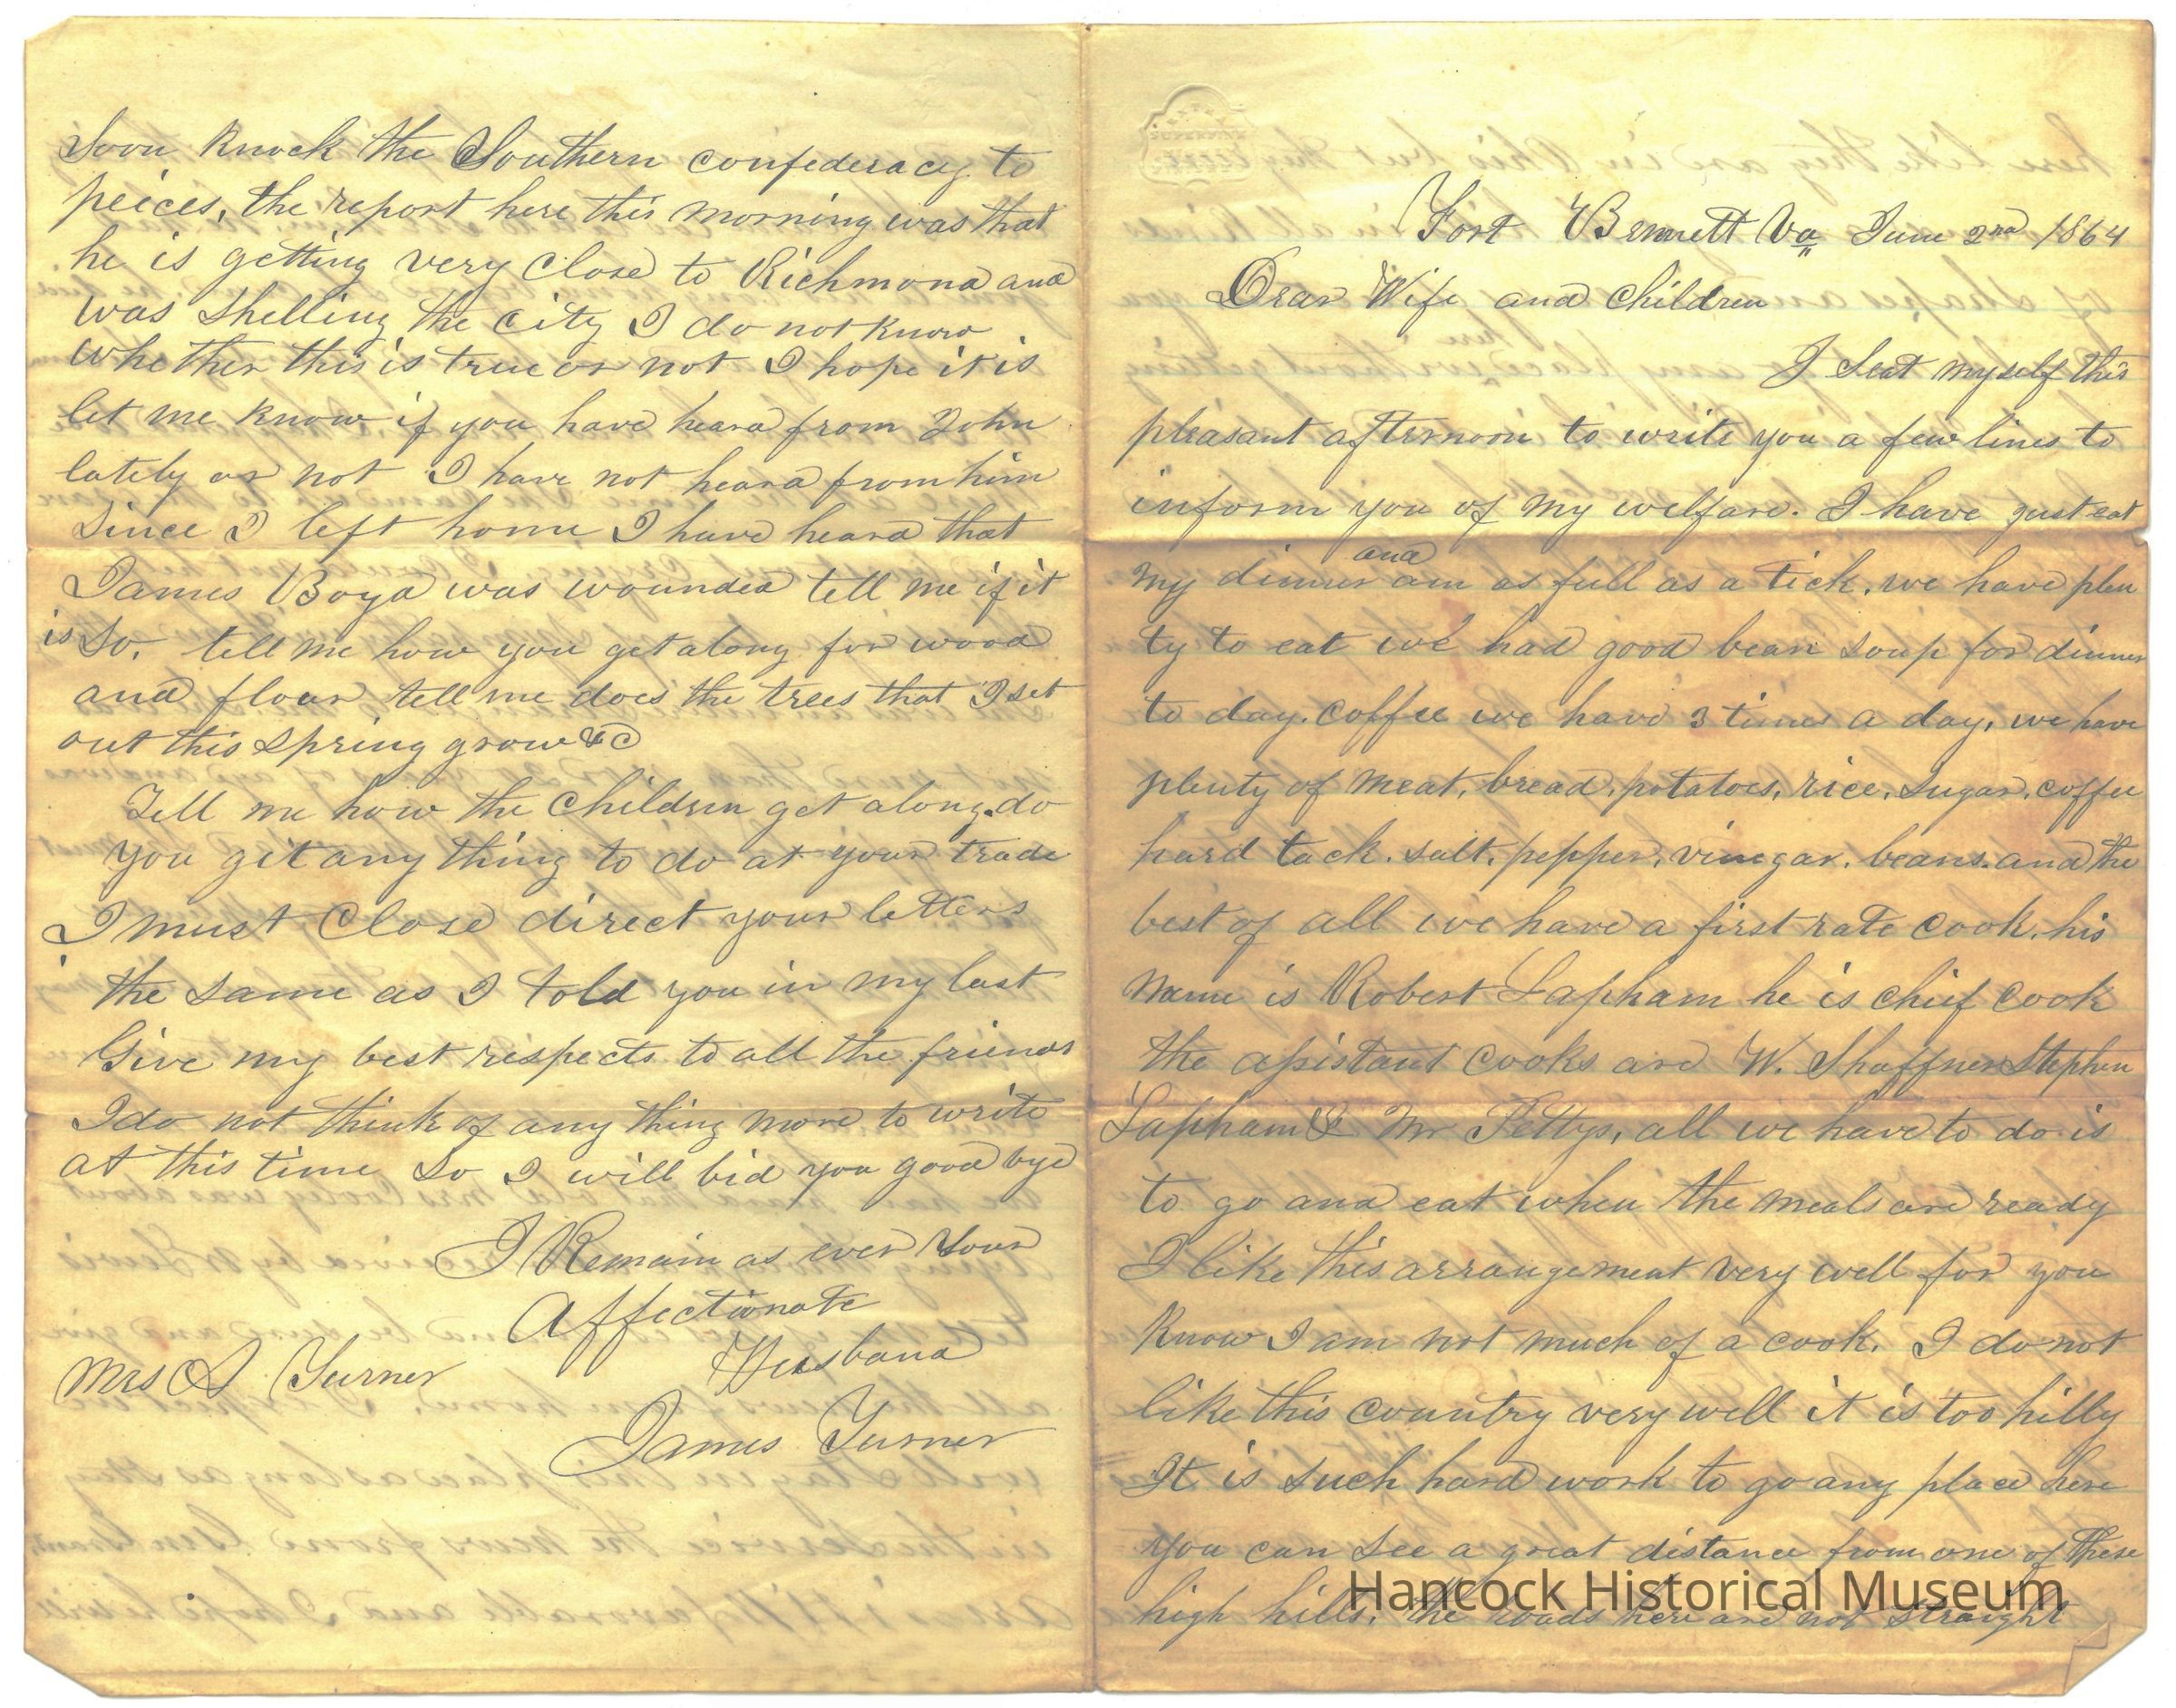 Fort Bennett Va June 2nd 1864
Dear Wife and Children
I Seat myself this
pleasant afternoon to write you a few lines to
inform you of my welfare. I have just eat
my dinner and am as full as a tick. we have plen
ty to eat we had good bean soup for dinner
to day. coffee we have 3 times a day, we have
plenty of meat, bread, potatoes, rice, sugar, coffee
hard tack. salt, pepper, vinegar. beans. and the
best of all we have a first rate cook. his
name is Robert Lapham he is chief cook
the assistant cooks are W. Shaffner Stephen
Lapham & Mr Pettys, all we have to do is
to go and eat when the meals are ready
I like this arrangement very well for you
know I am not much of a cook. I do not
like this country very well it is too hilly
It is such hard work to go any place here
you can see a great distance from one of these
high hills. the roads here are not straight
Soon knock the Southern confederacy to
peices, the report here this morning was that
he is getting very close to Richmond and
was shelling the city I do not know
whether this is true or not I hope it is
let me know if you have heard from John
lately or not I have not heard from him
since I left home I have heard that
James Boyd was wounded tell me if it
is so. tell me how you get along for wood
and flour tell me does the trees that I set
out this spring grow &C
Tell me how the children get along. do
you git any thing to do at your trade
I must close direct your letters
the same as I told you in my last
Give my best respects to all the friends
I do not think of any thing more to write
at this time so I will bid you good bye
I Remain as ever Your
Affectionate
Husband
Mrs A Turner
James Turner
Hancock Historical Museum